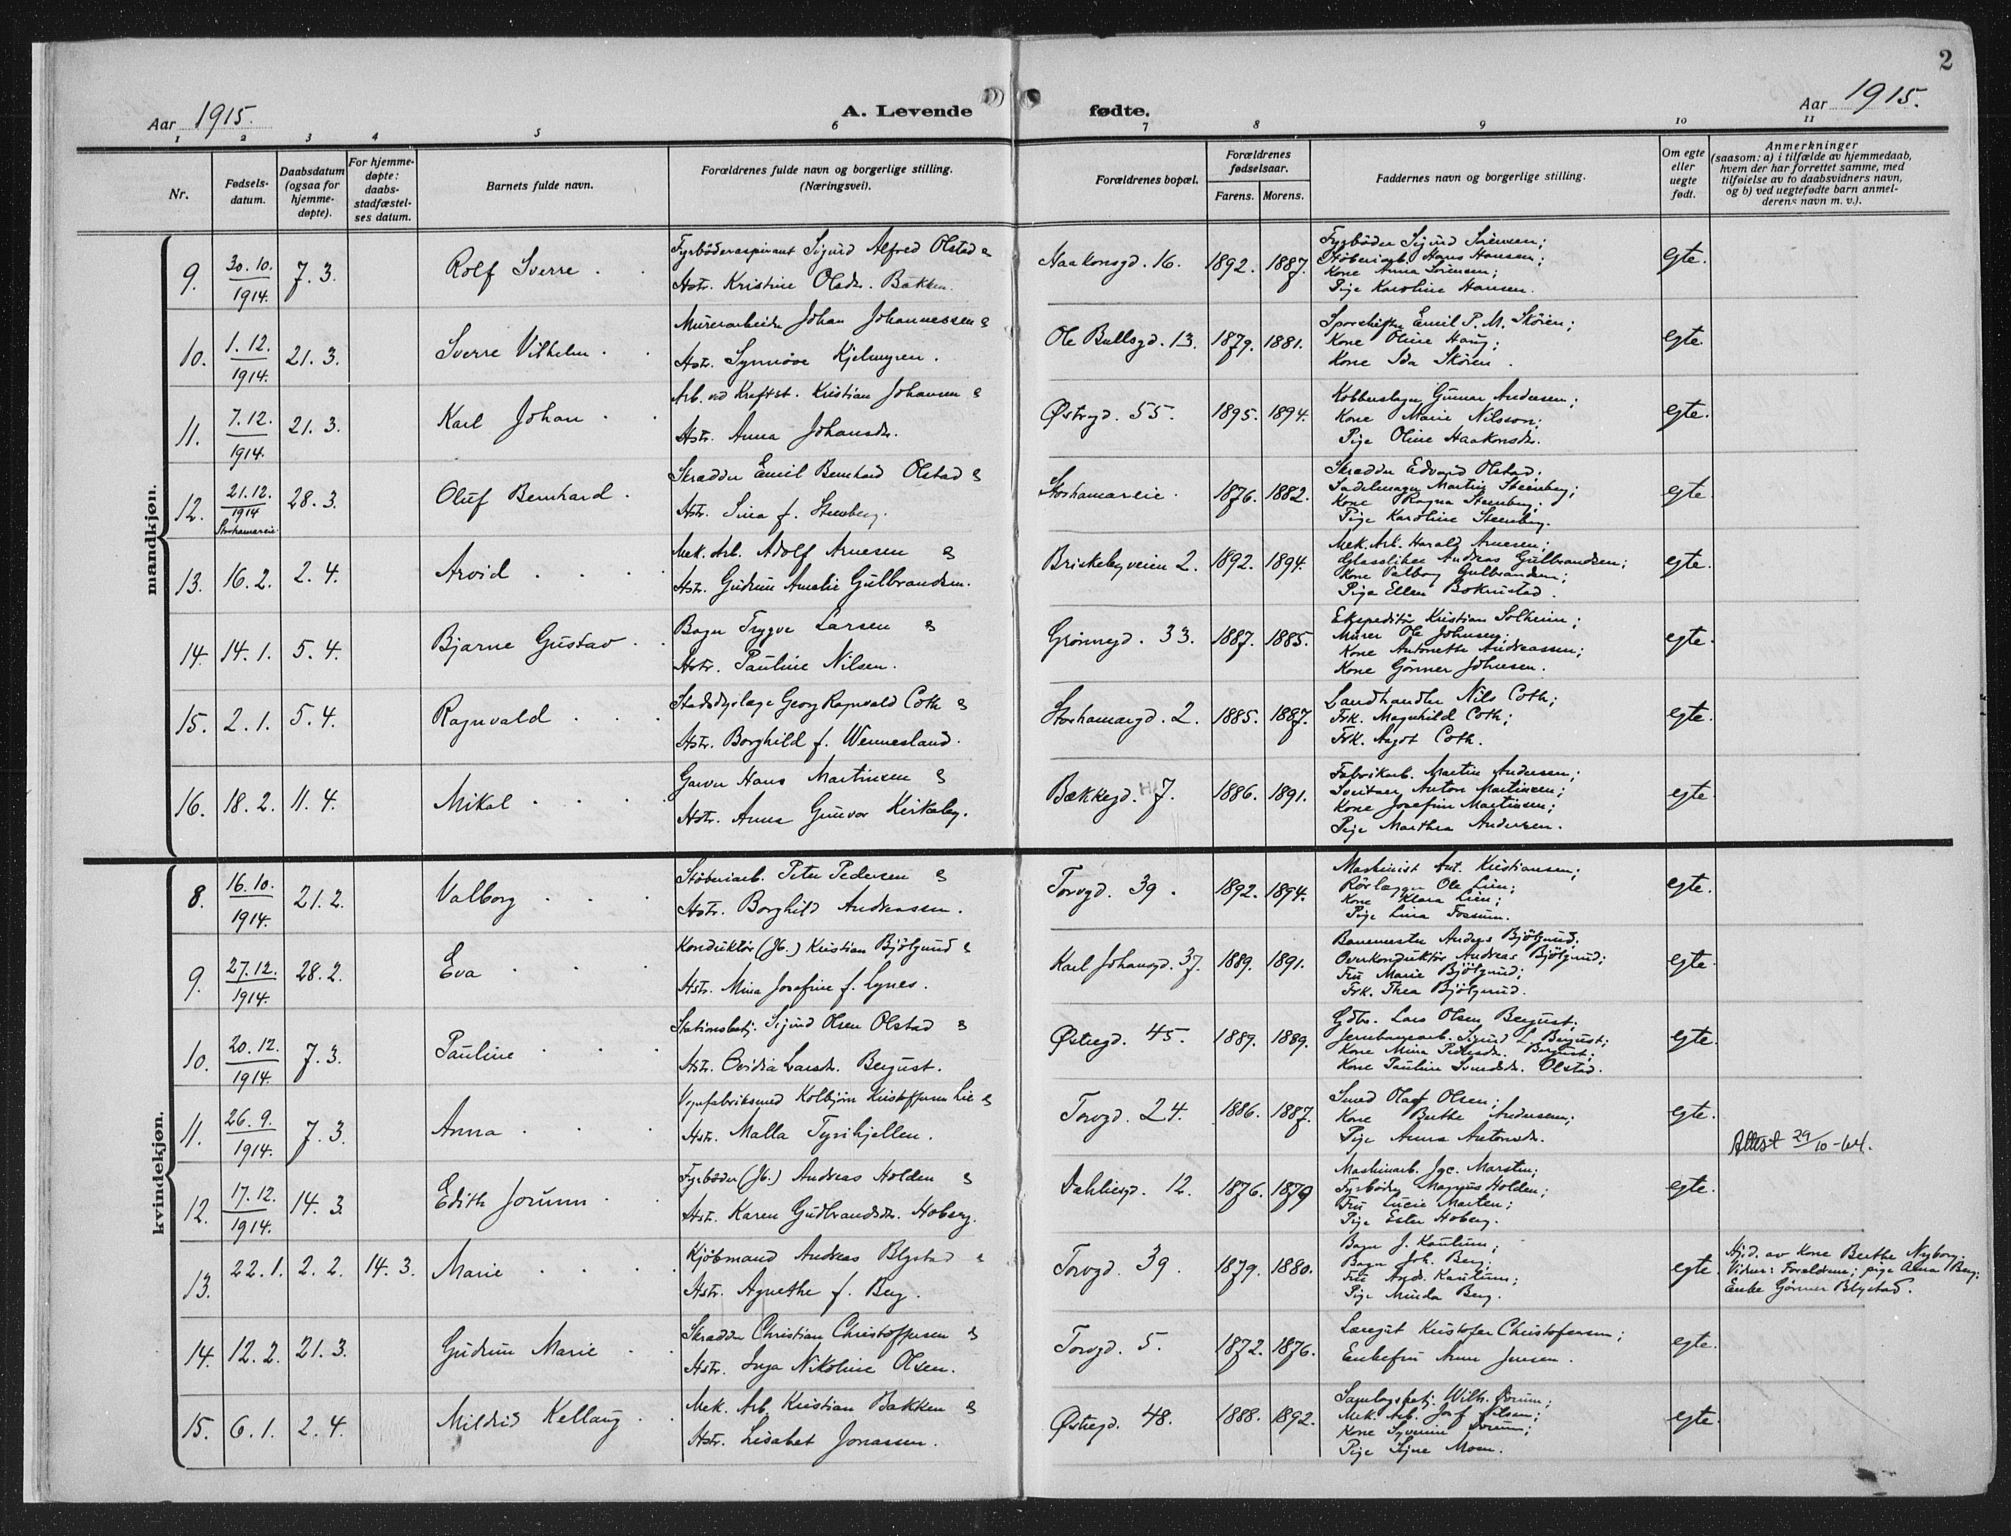 2
Aar 1915.
A. Levende fødte.
Aar 1915.
1 2 3 4 5 6 7 8 9 10 11
Nr.
Fødsels-
datum.
Daabsdatum
(ogsaa for
hjemme-
døpte).
For hjemme-
døpte:
daabs-
stadfæstel-
ses datum.
Barnets fulde navn.
Forældrenes fulde navn og borgerlige stilling.
(Næringsvei).
Forældrenes bopæl.
Forældrenes
fødselsaar.
Farens. Morens.
Faddernes navn og borgerlige stilling.
Om egte
eller
uegte
født.
Anmerkninger
(saasom: a) i tilfælde av hjemmedaab,
hvem der har forrettet samme, med
tilføielse av to daabsvidners navn,
og b) ved uegtefødte barn anmel-
derens navn m. v.).
mandkjøn.
9. 30.10. 1914. 7.3. Rolf Sverre
Fyrbøderaspirant Sigurd Alfred Olstad &
Hstr. Kristine Olsdr. Bakken.
Haakonsgd. 16. 1892. 1887.
Fyrbøder Sigurd Sørensen;
Støberiarb. Hans Hansen;
Kone Anna Sørensen;
Pige Karoline Hansen.
egte.
10. 1.12. 1914. 21.3. Sverre Vilhelm
Murerarbeider Johan Johannessen &
Hstr. Synnøve Kjelmyren.
Ole Bullsgd. 13. 1879. 1881.
Sporskifter Emil P. M. Skøien;
Kone Oline Haug;
Kone Ida Skøien.
egte.
11. 7.12. 1914. 21.3. Karl Johan
Arb. ved Kraftst. Kristian Johansen &
Hstr. Anna Johansdr.
Østregd. 55. 1895. 1894.
Kobberslager Gunnar Andersen;
Kone Marie Nilsson;
Pige Oline Haakonsdr.
egte.
12. 21.12. 1914 Storhamareie 28.3. Oluf Bernhard
Skrædder Emil Bernhard Olstad &
Hstr. Sina f. Stenberg.
Storhamareie. 1876. 1882.
Skrædder Edvard Olstad;
Sadelmager Martin Steenberg;
Kone Ragna Steenberg;
Pige Karoline Steenberg.
egte.
13. 16.2. 2.4. Arvid
Mek. Arb. Adolf Arnesen &
Hstr. Gudrun Amalie Gulbrandsen.
Briskebyveien 2. 1892. 1894.
Mek. Arb. Harald Arnesen;
Glassliber Andreas Gulbrandsen;
Kone Valborg Gulbrandsen;
Pige Ellen Bokrustad.
egte.
14. 14.1. 5.4. Bjarne Gustav
Bager Trygve Larsen &
Hstr. Pauline Nilsen.
Grønnegd. 33. 1887. 1885.
Ekspeditør Kristian Solheim;
Murer Ole Johnsen;
Kone Antonette Andreassen;
Kone Gönner Johnsen.
egte.
15. 2.1. 5.4. Ragnvald
Stadsdyrlæge Georg Ragnvald Coth &
Hstr. Borghild f. Wennesland.
Storhamargd. 2. 1885. 1887.
Landhandler Nils Coth;
Frk. Magnhild Coth;
Frk. Aagot Coth.
egte.
16. 18.2. 11.4. Mikal
Garver Hans Martinsen &
Hstr. Anna Gunvor Kirkeby.
Bækkegd. 7. 1886. 1891.
Fabrikarb. Martin Andersen;
Sveitser Anton Martinsen;
Kone Josefine Martinsen;
Pige Marthea Andersen.
egte.
kvindekjøn.
8. 16.10. 1914. 21.2. Valborg
Støberiarb. Peter Pedersen &
Hstr. Borghild Andreassen.
Torvgd. 39. 1892. 1894.
Maskinist Ant. Kristiansen;
Rørlægger Ole Lien;
Kone Klara Lien;
Pige Lina Fossum.
egte.
9. 27.12. 1914. 28.2. Eva
Konduktør (Jb.) Kristian Bjölgerud &
Hstr. Mina Josefine f. Lynes.
Karl Johansgd. 37. 1889. 1891.
Banemester Anders Bjölgerud;
Overkonduktör Andreas Bjölgerud;
Fru Marie Bjölgerud;
Frk. Thea Bjölgerud.
egte.
10. 20.12. 1914. 7.3. Pauline
Stationsbetj. Sigurd Olsen Olstad &
Hstr. Ovidia Larsdr. Bergust.
Østregd. 45. 1889. 1889.
Gdbr. Lars Olsen Bergust;
Jernbanearb. Sigurd L. Bergust;
Kone Mina Pedersdr. Bergust;
Kone Pauline Svendsdr. Olstad.
egte.
11. 26.9. 1914. 7.3. Anna
Vognfabriksmed Kolbjørn Kristoffersen Lie &
Hstr. Malla Tyrihjellen.
Torvgd. 24. 1886. 1887.
Smed Olaf Olsen;
Kone Berthe Andersen;
Pige Anna Antonsdr.
egte.
Attest 29/10-64.
12. 17.12. 1914. 14.3. Edith Jorunn
Fyrbøder (Jb.) Andreas Holden &
Hstr. Karen Gudbrandsdr. Hoberg.
Dahliegd. 12. 1876. 1879
Maskinarb. Jgc. Marsten;
Fyrbøder Magnus Holden;
Fru Lucie Marsten;
Pige Ester Hoberg.
egte.
13. 22.1. 2.2. 14.3. Marie
Kjøbmand Andreas Blystad &
Hstr. Agnethe f. Berg.
Torvgd. 39. 1879. 1880.
Bager J. Kautum;
Bager Joh. Berg;
Fru And. Kautum;
Pige Minda Berg.
egte.
Hjd. av Kone Berthe Nyborg.
Vidner: Forældrene; pige Anna Berg;
Enke Gönner Blystad.
14. 12.2. 21.3. Gudrun Marie
Skrædder Christian Christoffersen &
Hstr. Inga Nikoline Olsen.
Torvgd. 5. 1872. 1876.
Læregut Kristofer Christofersen;
Enkefru Anne Jensen.
egte.
15. 6.1. 2.4. Mildrid Kellaug
Mek. Arb. Kristian Bakken &
Hstr. Lisabet Jonassen.
Østregd. 48. 1888. 1892.
Samlagsbetj. Wilh. Sørum;
Mek. Arb. Josef Nilsen;
Kone Syverine Sørum;
Pige Signe Moen.
egte.